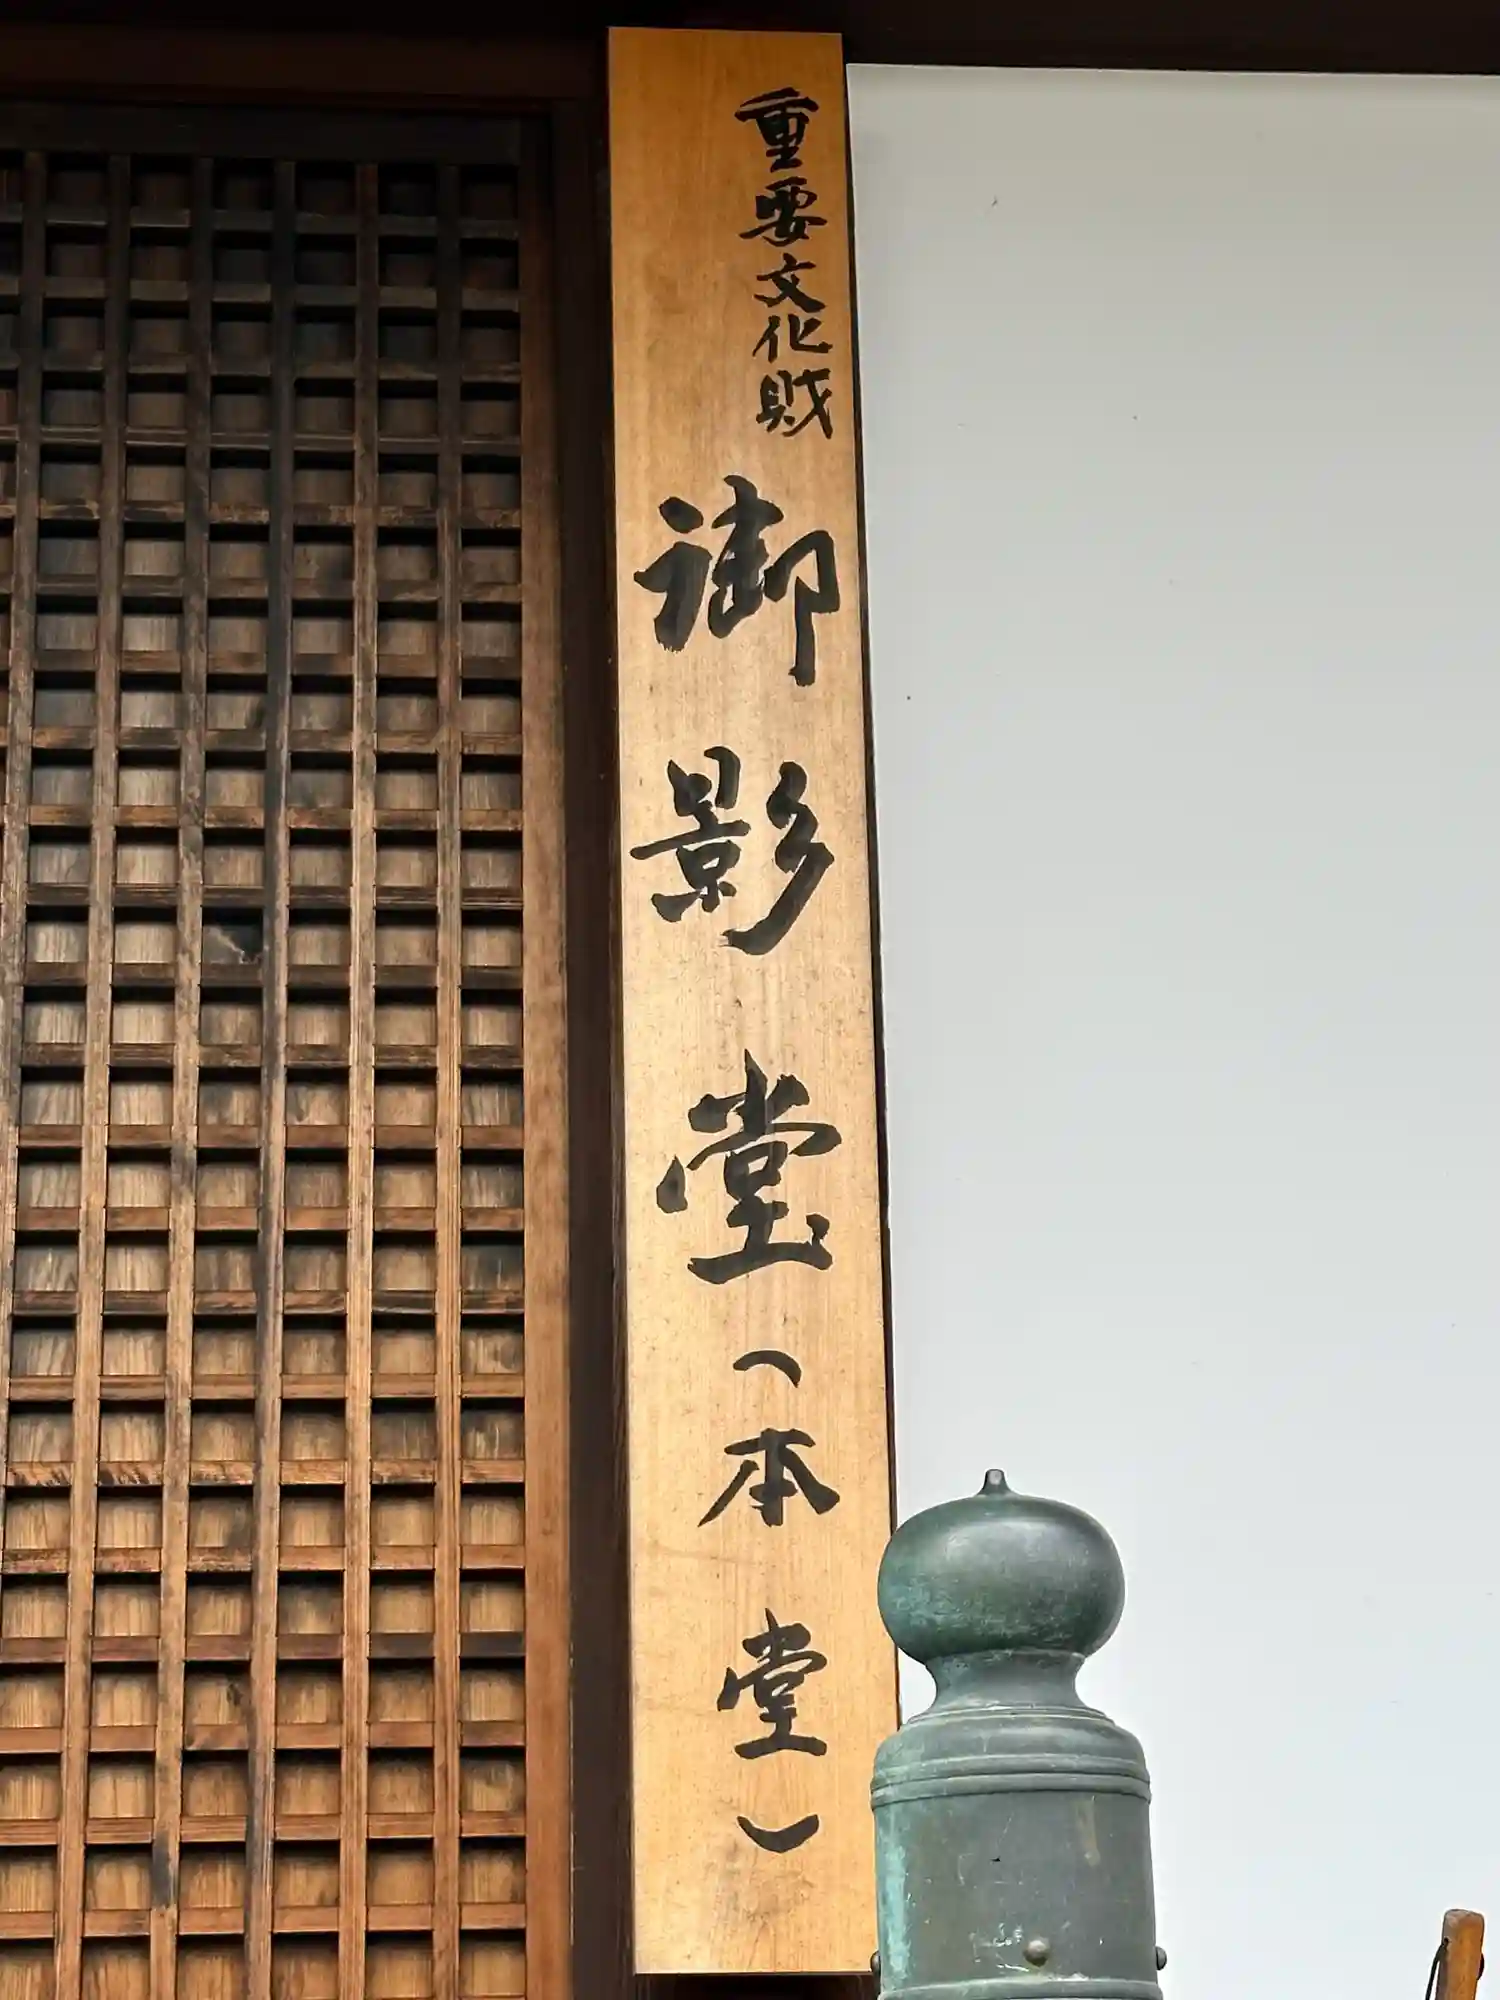 重要文化財
御影堂(本堂)